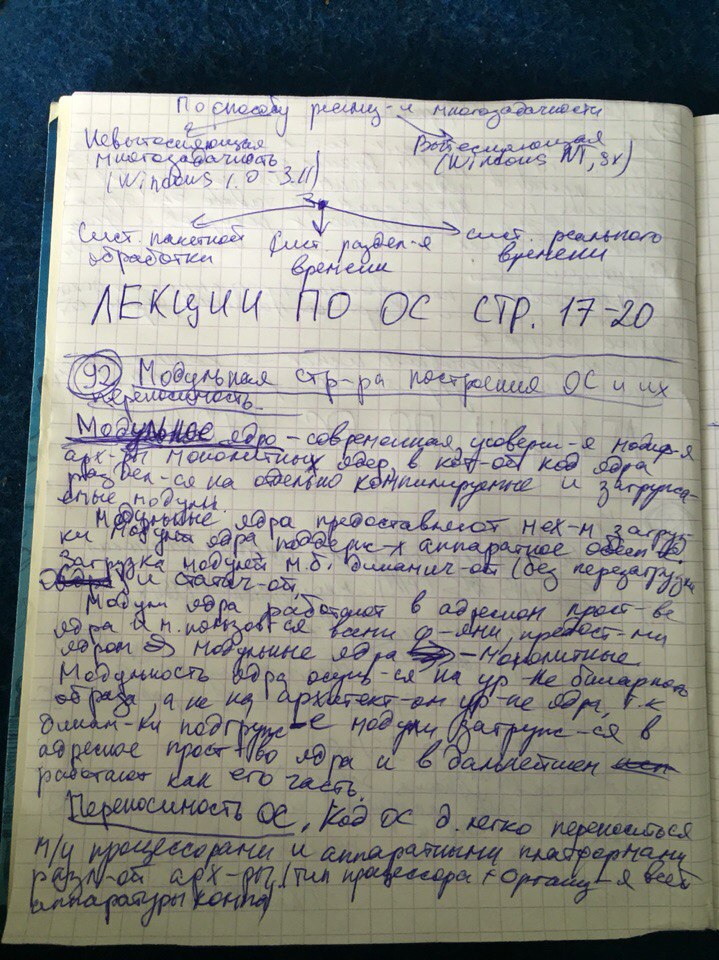 По способу реализ-и многозадачности
Невытесняющая
многозадачность
(Windows 1.0-3.11)
Вытесняющая
(Windows NT, 9x)
сист. пакетной
обработки
Сист. раздел-я
времени
сист. реального
времени
ЛЕКЦИИ ПО ОС СТР. 17-20
92 Модульная стр-ра построения ОС и их
переносимость.
Модульное ядро - современная, усоверш-я модиф-я
арх-ры монолитных ядер, в кот-ой код ядра
раздел-ся на отдельно компилируемые и загружа-
емые модули.
Модульные ядра предоставляют мех-м загруз-
ки модул ядра поддерж-х аппаратное обесп
Загрузка модулей м.б. динамич-ой (без перезагрузки
и статич-ой.
Модули ядра работают в адресном прост-ве
ядра и м. пользов-ся всеми ф-ями, предост-ми
ядром => модульные ядра - монолитные
Модульность ядра осущ-ся на ур-не бинарного
образа, а не на архитект-ом ур-не ядра, т.к
динам-ки подгруж-е модули загруж-ся в
адресное прост-во ядра и в дальнейшем
работают как его часть.
Переносимость ОС. Код ОС д. легко переноситься
м/у процессорами и аппаратными платформами
разл-ой арх-ры (тип процессора + организ-я всей
аппаратуры компа)